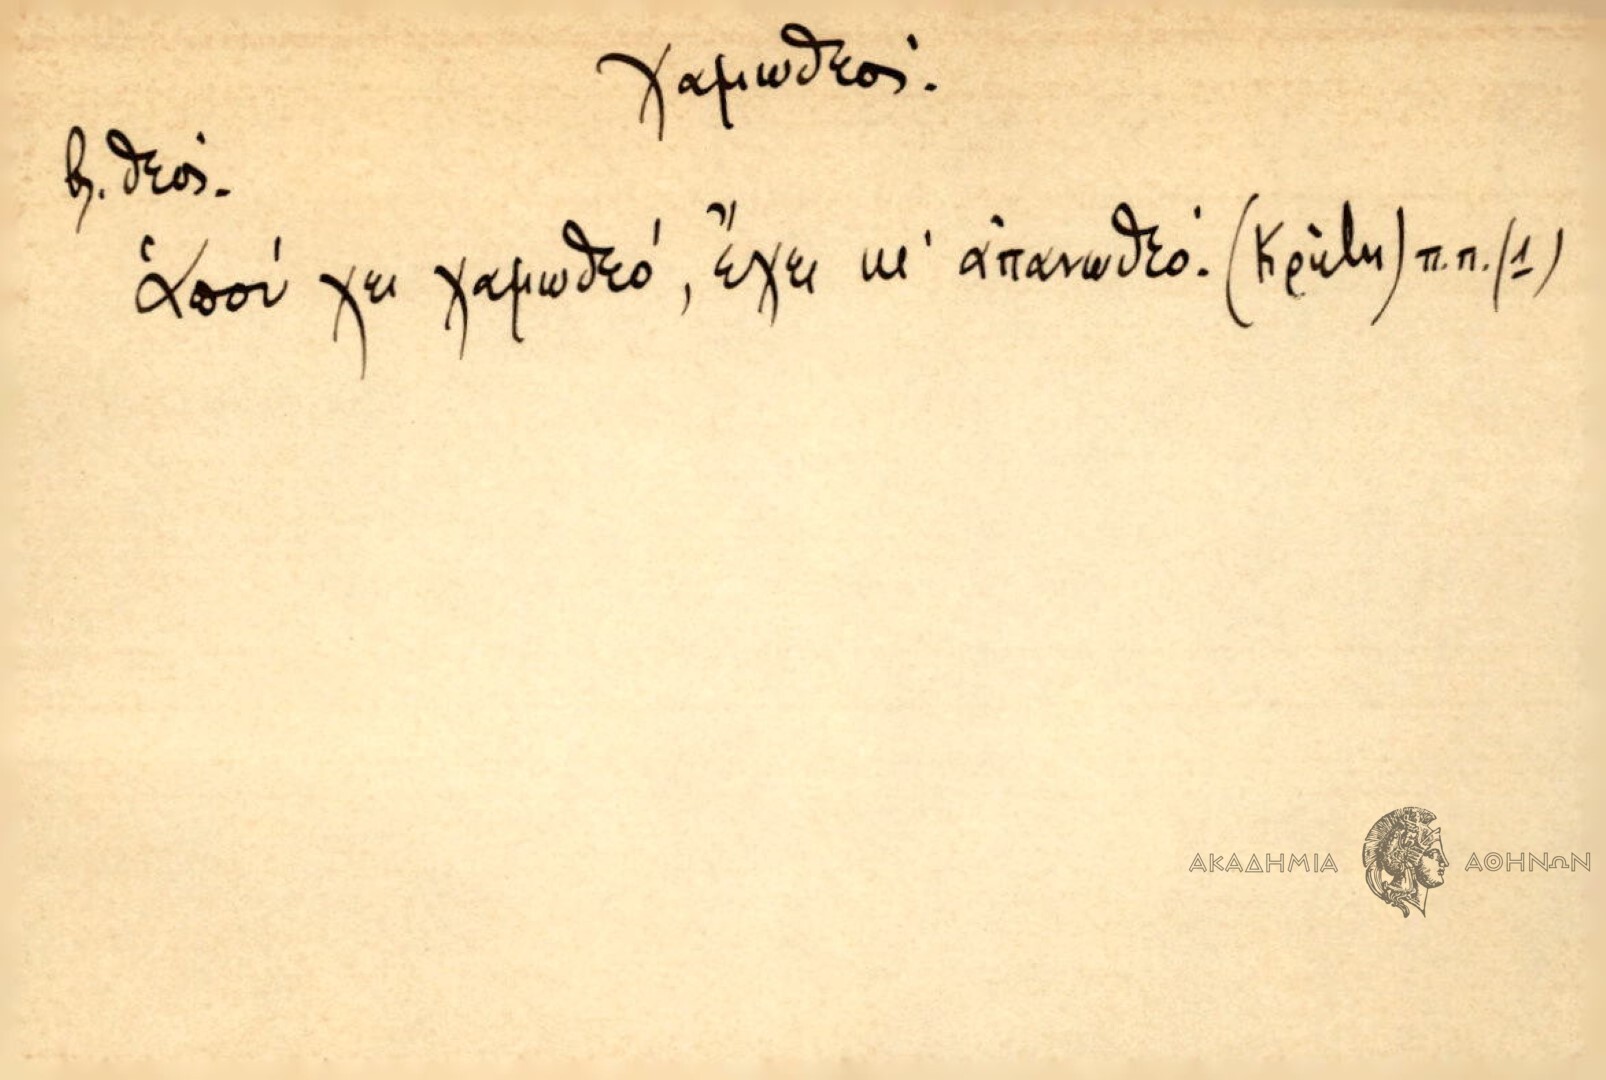 χαμωθεός.
βλ. θεός.
Ἁποὺ χει χαμωθεό, ἔχει κι' ἀπανωθεό. (Κρήτη) π.π. (1)
ΑΚΑΔΗΜΙΑ ΑΘΗΝΩΝ